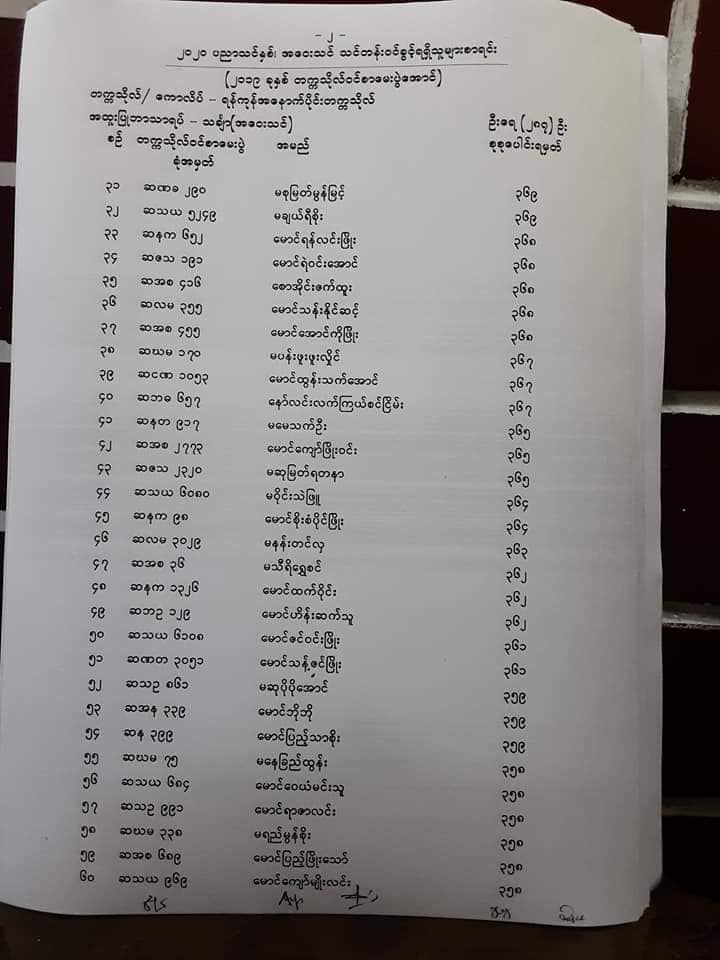 – ၂ –
၂၀၂၀ ပညာသင်နှစ်၊ အဝေးသင် သင်တန်းဝင်ခွင့်ရရှိသူများစာရင်း
(၂၀၁၉ ခုနှစ် တက္ကသိုလ်ဝင်စာမေးပွဲအောင်)
တက္ကသိုလ်/ ကောလိပ် – ရန်ကုန်အနောက်ပိုင်းတက္ကသိုလ်
အထူးပြုဘာသာရပ် – သင်္ချာ(အဝေးသင်) ဦးရေ (၂၈၇) ဦး
စဉ် တက္ကသိုလ်ဝင်စာမေးပွဲ အမည် စုစုပေါင်းရမှတ်
ခုံအမှတ်
၃၁ ဆဏခ ၂၉၀ မစုမြတ်မွန်မြင့် ၃၆၉
၃၂ ဆသယ ၅၂၄၉ မချယ်ရီစိုး ၃၆၉
၃၃ ဆနက ၆၅၂ မောင်ရန်လင်းဖြိုး ၃၆၈
၃၄ ဆဇသ ၁၉၁ မောင်ရဲဝင်းအောင် ၃၆၈
၃၅ ဆအစ ၄၁၆ စောအိုင်းဇက်ထူး ၃၆၈
၃၆ ဆလမ ၃၅၅ မောင်သန်းနိုင်ဆင့် ၃၆၈
၃၇ ဆအစ ၄၅၅ မောင်အောင်ကိုဖြိုး ၃၆၈
၃၈ ဆဃမ ၁၇၀ မပန်းဖူးဖူးလှိုင် ၃၆၇
၃၉ ဆငဏ ၁၀၅၃ မောင်ထွန်းသက်အောင် ၃၆၇
၄၀ ဆဘခ ၆၅၇ နော်လင်းလက်ကြယ်စင်ငြိမ်း ၃၆၇
၄၁ ဆနတ ၉၁၇ မမေသက်ဦး ၃၆၅
၄၂ ဆအစ ၂၇၇၃ မောင်ကျော်ဖြိုးဝင်း ၃၆၅
၄၃ ဆဇသ ၂၃၂၀ မဆုမြတ်ရတနာ ၃၆၅
၄၄ ဆသယ ၆၀၈၀ မဝိုင်းသဲဖြူ ၃၆၄
၄၅ ဆနက ၉၈ မောင်စိုးစံပိုင်ဖြိုး ၃၆၄
၄၆ ဆလမ ၃၀၂၉ မနန်းတင်လှ ၃၆၃
၄၇ ဆအစ ၃၆ မသီရိရွှေစင် ၃၆၂
၄၈ ဆနက ၁၃၂၆ မောင်ထက်ပိုင်း ၃၆၂
၄၉ ဆဘဥ ၁၂၉ မောင်ဟိန်းဆက်သူ ၃၆၂
၅၀ ဆသယ ၆၁၀၈ မောင်ဇင်ဝင်းဖြိုး ၃၆၁
၅၁ ဆဏတ ၃၀၅၁ မောင်သန့်ဇင်ဖြိုး ၃၆၁
၅၂ ဆသဥ ၈၆၁ မဆုပိုပိုအောင် ၃၅၉
၅၃ ဆအန ၃၃၉ မောင်ဘိုဘို ၃၅၉
၅၄ ဆန ၃၉၉ မောင်ပြည့်သာစိုး ၃၅၉
၅၅ ဆဃမ ၇၅ မနေခြည်ထွန်း ၃၅၈
၅၆ ဆသယ ၆၈၄ မောင်ဝေယံမင်းသူ ၃၅၈
၅၇ ဆသဥ ၉၉၁ မောင်ရာဇာလင်း ၃၅၈
၅၈ ဆဃမ ၃၃၈ မရည်မွန်စိုး ၃၅၈
၅၉ ဆအစ ၆၈၉ မောင်ပြည့်ဖြိုးသော် ၃၅၈
၆၀ ဆသယ ၉၆၉ မောင်ကျော်မျိုးလင်း ၃၅၈